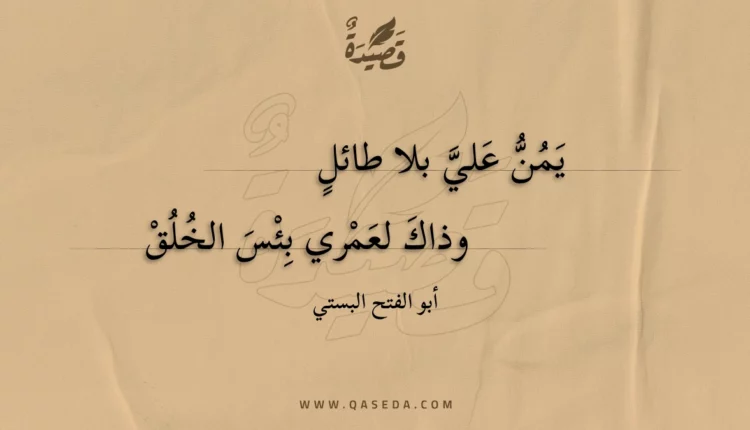 قَصِيدَةٌ
يَمُنُّ عَليَّ بلا طائلٍ
وذاكَ لعَمْري بِئْسَ الخُلُقْ
أبو الفتح البستي
WWW.QASEDA.COM